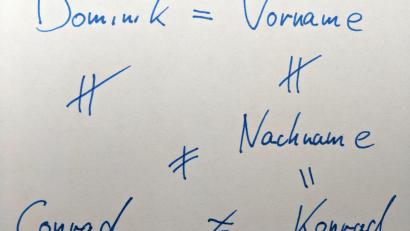 Dominik = Vorname
≠ ≠
Nachname
≠ =
Conrad ≠ Konrad